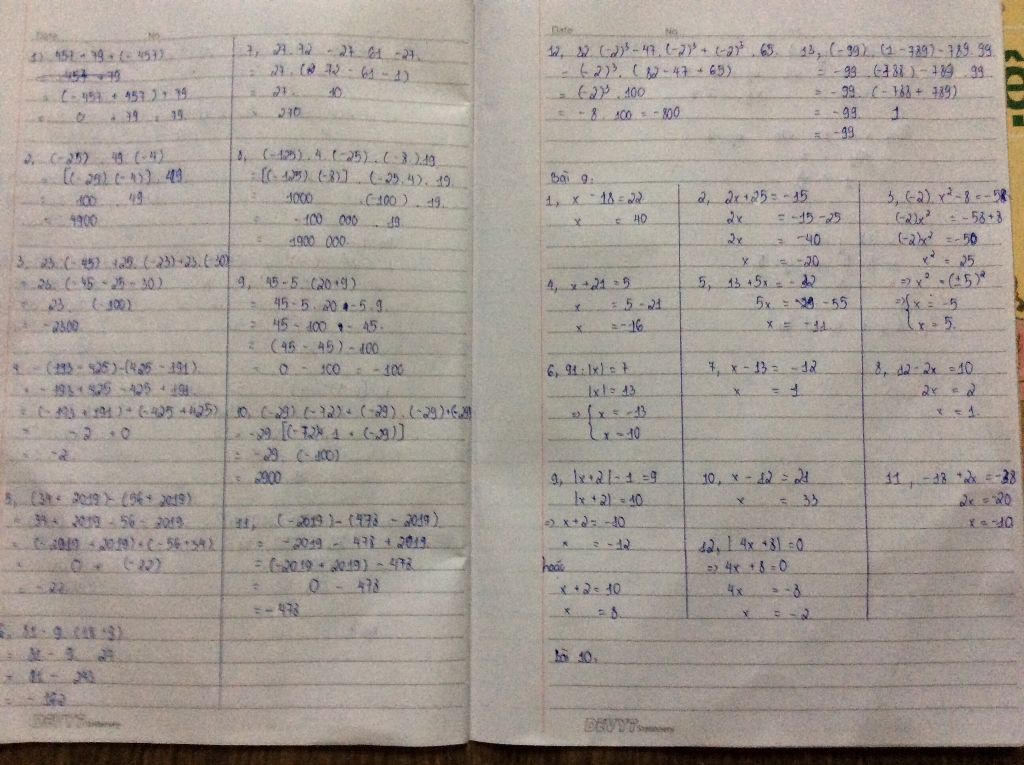 Date No
1) 457 + 79 + (-457)
= 457 + 79
= (-457 + 457) + 79
= 0 + 79 = 79
2, (-25) . 49 (-4)
= [(-25) (-4)] . 49
= 100 . 49
= 4900
3. 23. (-45) + 23. (-25) + 23. (-30)
= 23. (-45 - 25 - 30)
= 23 . (-100)
= -2300
4. - (193 - 425) - (425 - 191)
= - 193 + 425 - 425 + 191
= (-193 + 191) + (-425 + 425)
= - 2 + 0
= -2
5, (34 + 2019) - (56 + 2019)
= 34 + 2019 - 56 - 2019
= (-2019 + 2019) + (-56 + 34)
= 0 + (-22)
= -22
6, 81 - 9 . (18 + 9)
= 81 - 9 . 27
= 81 - 243
= - 162
7, 27. 72 - 27 61 - 27.
= 27. (72 - 61 - 1)
= 27 . 10
= 270
8, (-125) . 4 . (-25) . (-8) . 19
= [(-125) . (-8)] . (-25. 4) . 19.
= 1000 . (-100) . 19.
= -100 000 . 19
= 1900 000.
9, 45 - 5 . (20 + 9)
= 45 - 5 . 20 - 5 . 9
= 45 - 100 - 45.
= (45 - 45) - 100
= 0 - 100 = -100
10, (-29) (-72) + (-29) . (-29) + (-29
= -29 . [(-72) + 1 + (-29)]
= -29. (-100)
= 2900
11, (-2019) - (478 - 2019)
= -2019 - 478 + 2019.
= (-2019 + 2019) - 478
= 0 - 478
= - 478
DEVYT Stationery
Date No
12, 82 . (-2)³ - 47. (-2)³ + (-2)³ . 65
= (-2)³ . (82 - 47 + 65)
= (-2)³ . 100
= -8 . 100 = -800
13, (-99) . (1 - 789) - 789 . 99
= -99 . (-788) - 789 . 99
= -99 . (-788 + 789)
= -99 1
= -99
Bài 9:
1, x - 18 = 22
x = 40
2, 2x + 25 = -15
2x = -15 - 25
2x = -40
x = -20
3, (-2) . x² - 8 = -58
(-2)x² = -58 + 8
(-2)x² = -50
x² = 25
=> x² = (±5)²
=> { x = -5
x = 5.
4, x + 21 = 5
x = 5 - 21
x = -16
5, 13 + 5x = -32
5x = - 55
x = -11
6, 91 : |x| = 7
|x| = 13
=> { x = -13
x = 10
7, x - 13 = -12
x = 1
8, 12 - 2x = 10
2x = 2
x = 1.
9, |x+2| - 1 = 9
|x+2| = 10
=> x + 2 = -10
x = -12
hoặc
x + 2 = 10
x = 8
10, x - 12 = 21
x = 33
12, |4x + 8| = 0
=> 4x + 8 = 0
4x = -8
x = -2
11, -18 + 2x = -38
2x = -20
x = -10
Bài 10:
DEVYT Stationery